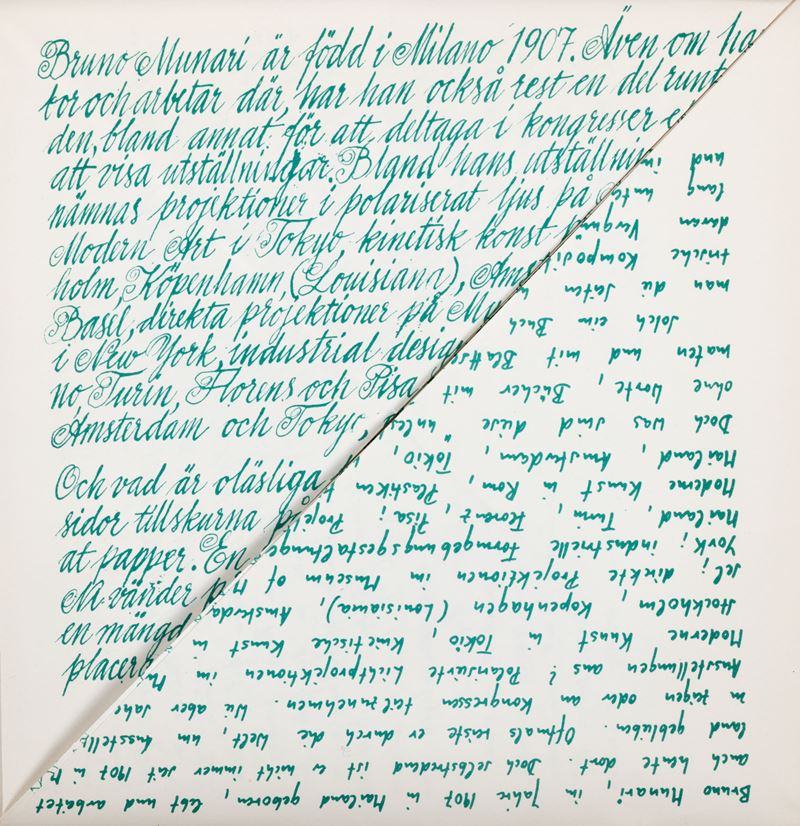 Bruno Munari är född i Milano 1907. Även om ha
tor och arbetar där, har han också rest en del runt
den, bland annat för att deltaga i kongresser
att visa utställningar. Bland hans utställnin
nämnas projektioner i polariserat ljus på
Modern Art i Tokyo, kinetisk konst
holm, Köpenhamn (Louisiana), Ams
Basel, direkta projektioner på Mu
i New York, industrial desig
no, Turin, Florens och Pisa,
Amsterdam och Tokyo,
Och vad är oläsliga
sidor tillskurna på
at papper. En
M vänder p
en mängd
placera
Bruno Munari, im Jahre 1907 in Mailand geboren, lebt und arbeitet
auch heute dort. Doch selbstredend ist er nicht immer seit 1907 in M
land geblieben. Oftmals reiste er durch die Welt, um Ausstellu
zu zeigen oder an Kongressen teilzunehmen. Wir aber
Ausstellungen aus: Polarisierte Lichtprojektionen im Mu
Moderne Kunst in Tokio, Kinetische Kunst in
Stockholm, Kopenhagen (Louisiana), Amsterda
sel; direkte Projektionen im Museum of M
York; industrielle Formgebungsgestaltung
Mailand, Turin, Florenz, Pisa; Projek
Moderne Kunst in Rom, Plastiken
Mailand, Amsterdam, Tokio,
Doch was sind diese "unles
ohne Worte, Bücher mit
maten und mit Blattsc
Solch ein Buch
man die Seiten
trische Komposit
daran Vergnü
lang unte
und in